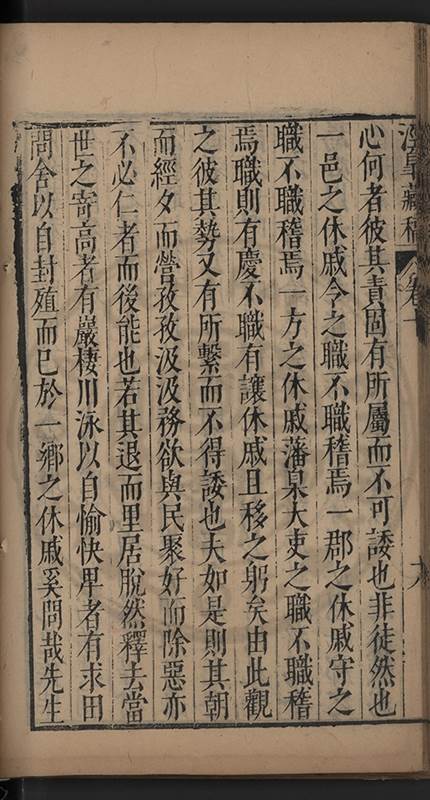 涇皐藏稿
卷
心何者彼其責固有所屬而不可諉也非徒然也
一邑之休戚令之職不職稽焉一郡之休戚守之
職不職稽焉一方之休戚藩臬大吏之職不職稽
焉職則有慶不職有讓休戚且移之躬矣由此觀
之彼其勢又有所繫而不得諉也夫如是則其朝
而經夕而營孜孜汲汲務欲與民聚好而除惡亦
不必仁者而後能也若其退而里居脫然釋去當
世之寄高者有巖棲川泳以自愉快卑者有求田
問舍以自封殖而已於一鄉之休戚奚問哉先生